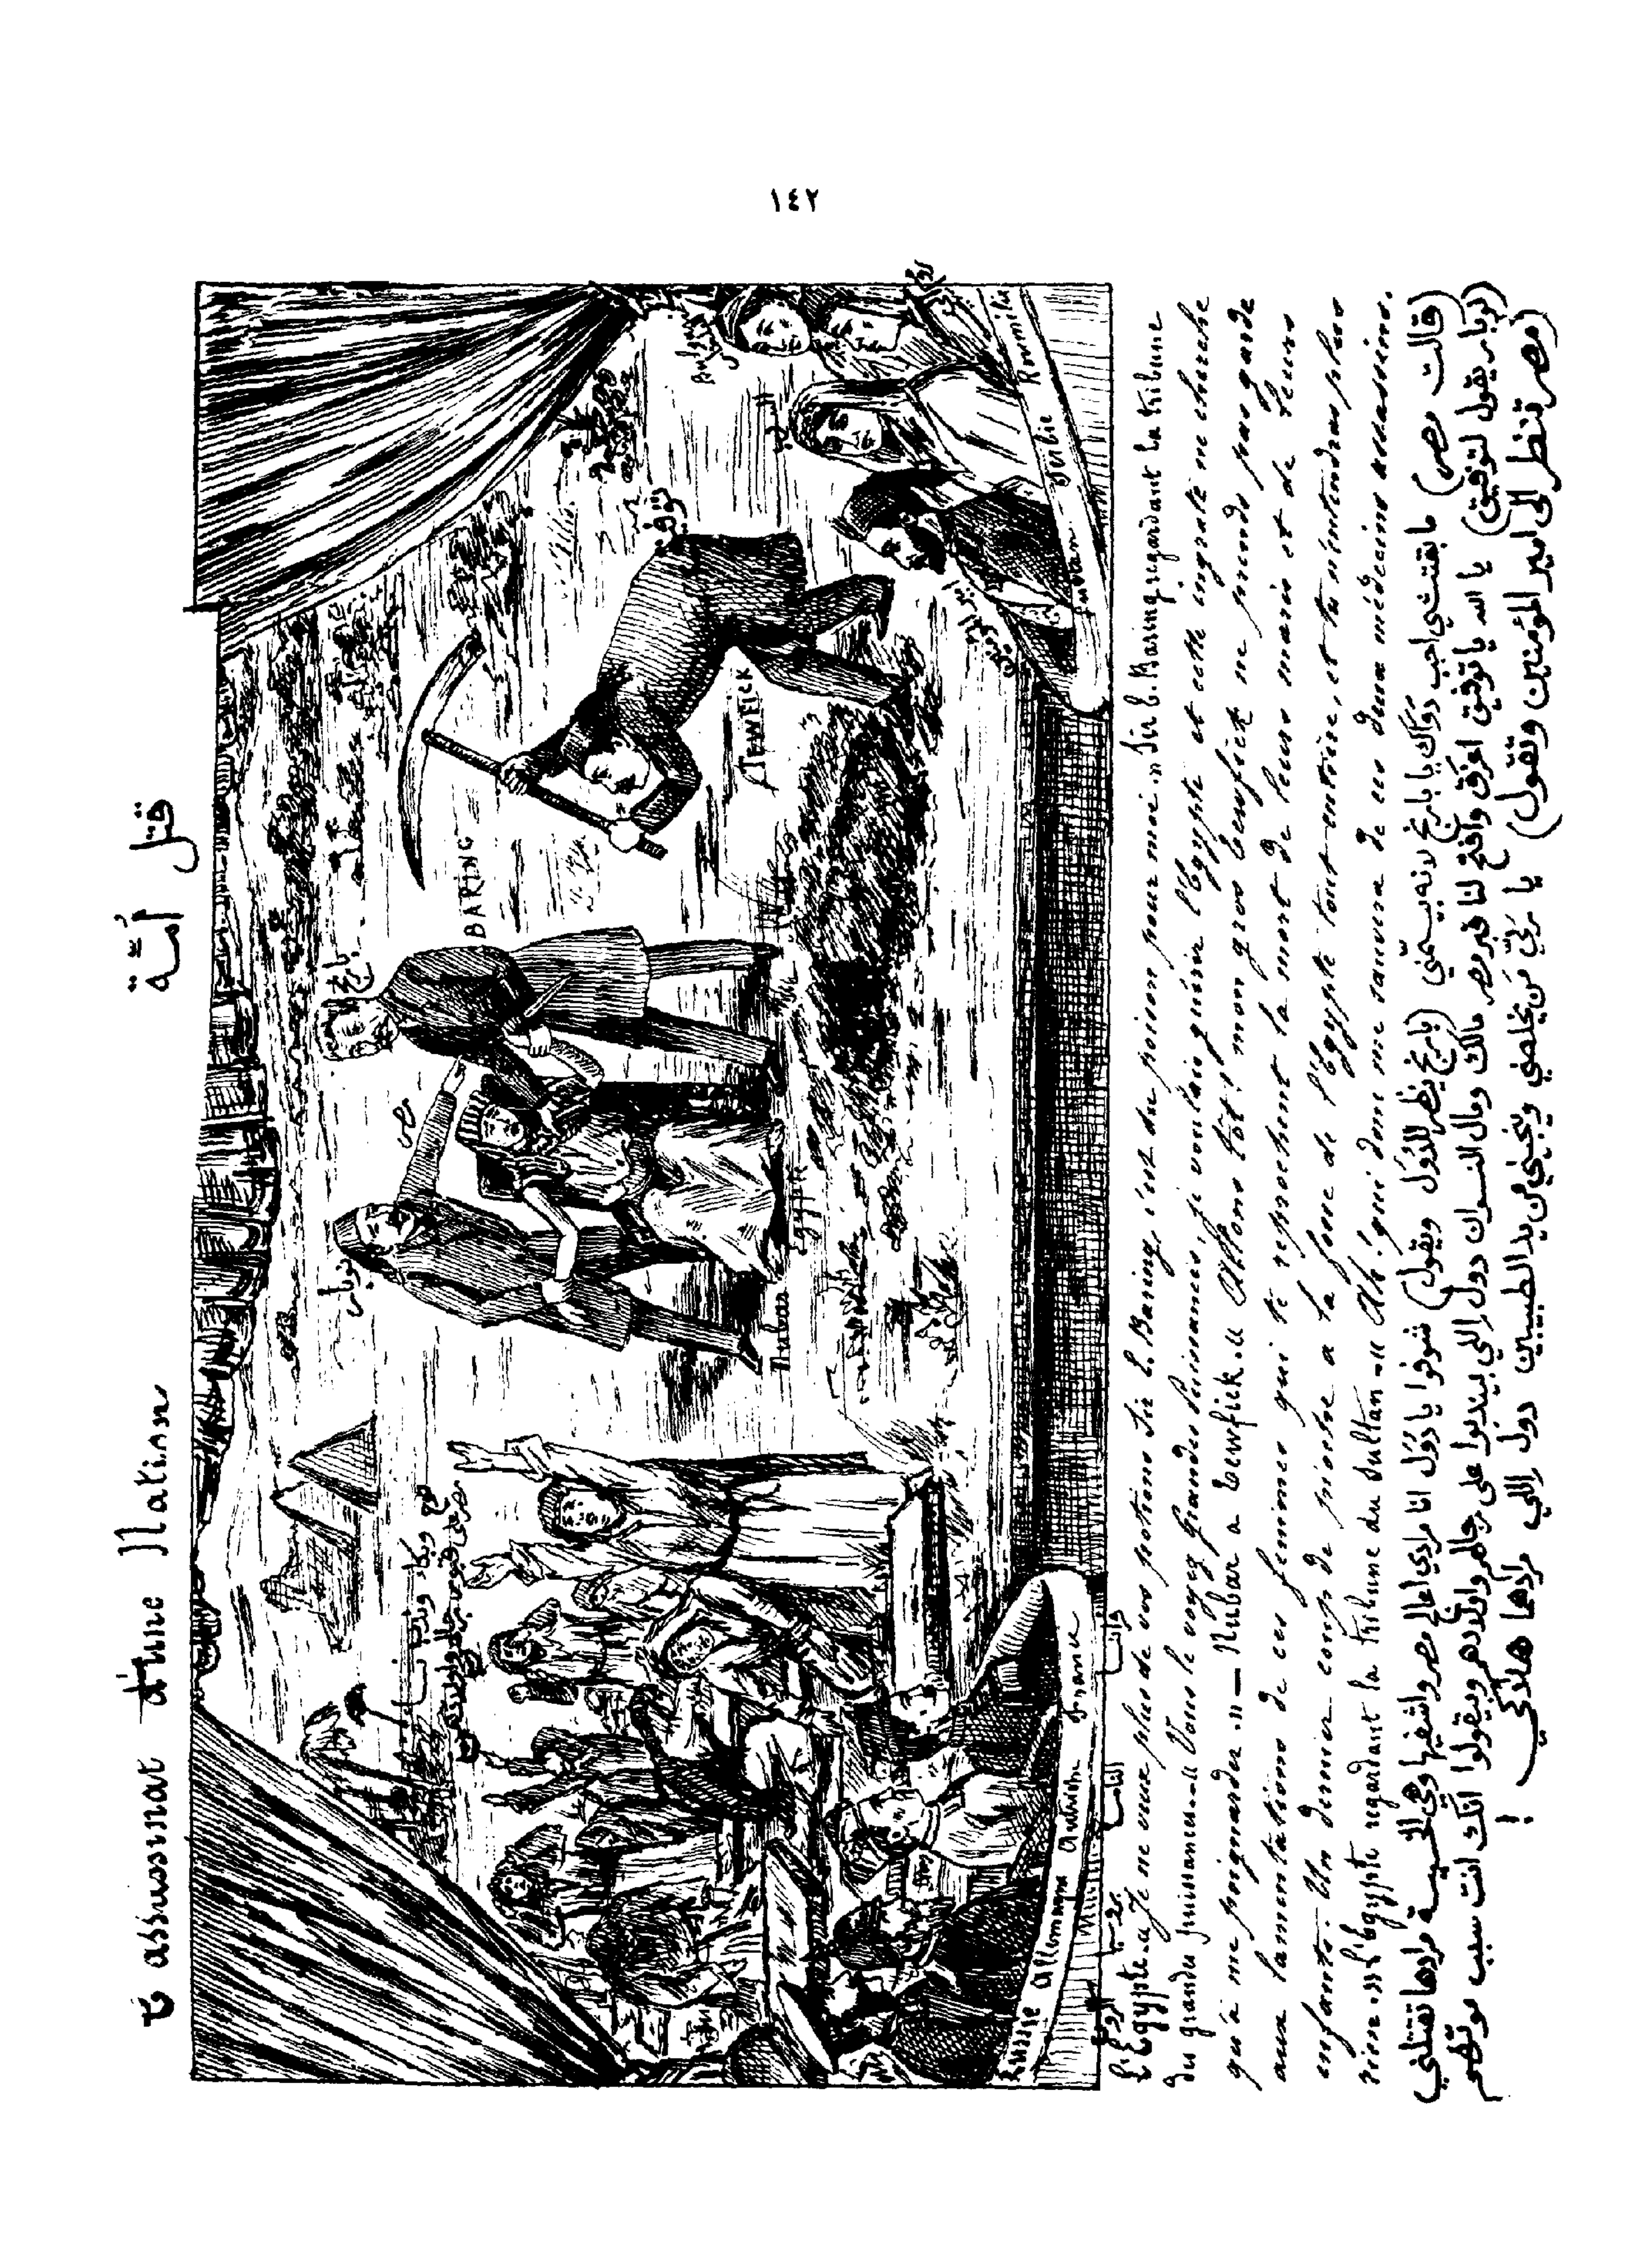 ١٤٢
L'assassinat d'une Nation
قتل أمّة
بارنج
BARING
نوبار
Nubar
مصر
Egypte
توفيق
TEWFICK
امير المؤمنين
Russie Allemagne Autriche France
Turban Serbie Roumilie
L'Egypte. « Je ne veux plus de vos potions Sir E. Baring, c'est du poison pour moi. » Sir E. Baring regardant la tribune
des grandes puissances. « Vous le voyez grandes Puissances, je voulais guérir l'Egypte et cette ingrate ne cherche
qu'à me poignarder. » — Nubar a Tewfick. « Allons tôt! mon gros Tewfick ne prends pas garde
aux lamentations de ces femmes qui te reprochent la mort de leurs maris et de leurs
enfants. Un dernier coup de pioche a la fosse de l'Egypte tout entière, et tu n'entendras plus
rien. » L'Egypte regardant la tribune du Sultan. « Ah! qui donc me sauvera de ces deux médecins assassins.
(قالت مصر) ما بقتشي احب دواك يا بارنج لانه بيسمّني (بارنج ينظر للدول ويقول) شوفوا يا دول انا مرادي اعالج مصر واشفيها وهي الخسيسة مرادها تقتلني
(نوبار يقول لتوفيق) يا الله يا توفيق اعزق وافتح لنا قبر مصر مالك ومال النسوان دول اللي بيندبوا على رجالهم واولادهم ويقولوا انك انت سبب موتهم
(مصر تنظر الى امير المؤمنين وتقول) يا ربّي من يخلصني وينجيني من يد الطبيبين دول اللي مرادهم هلاكي !